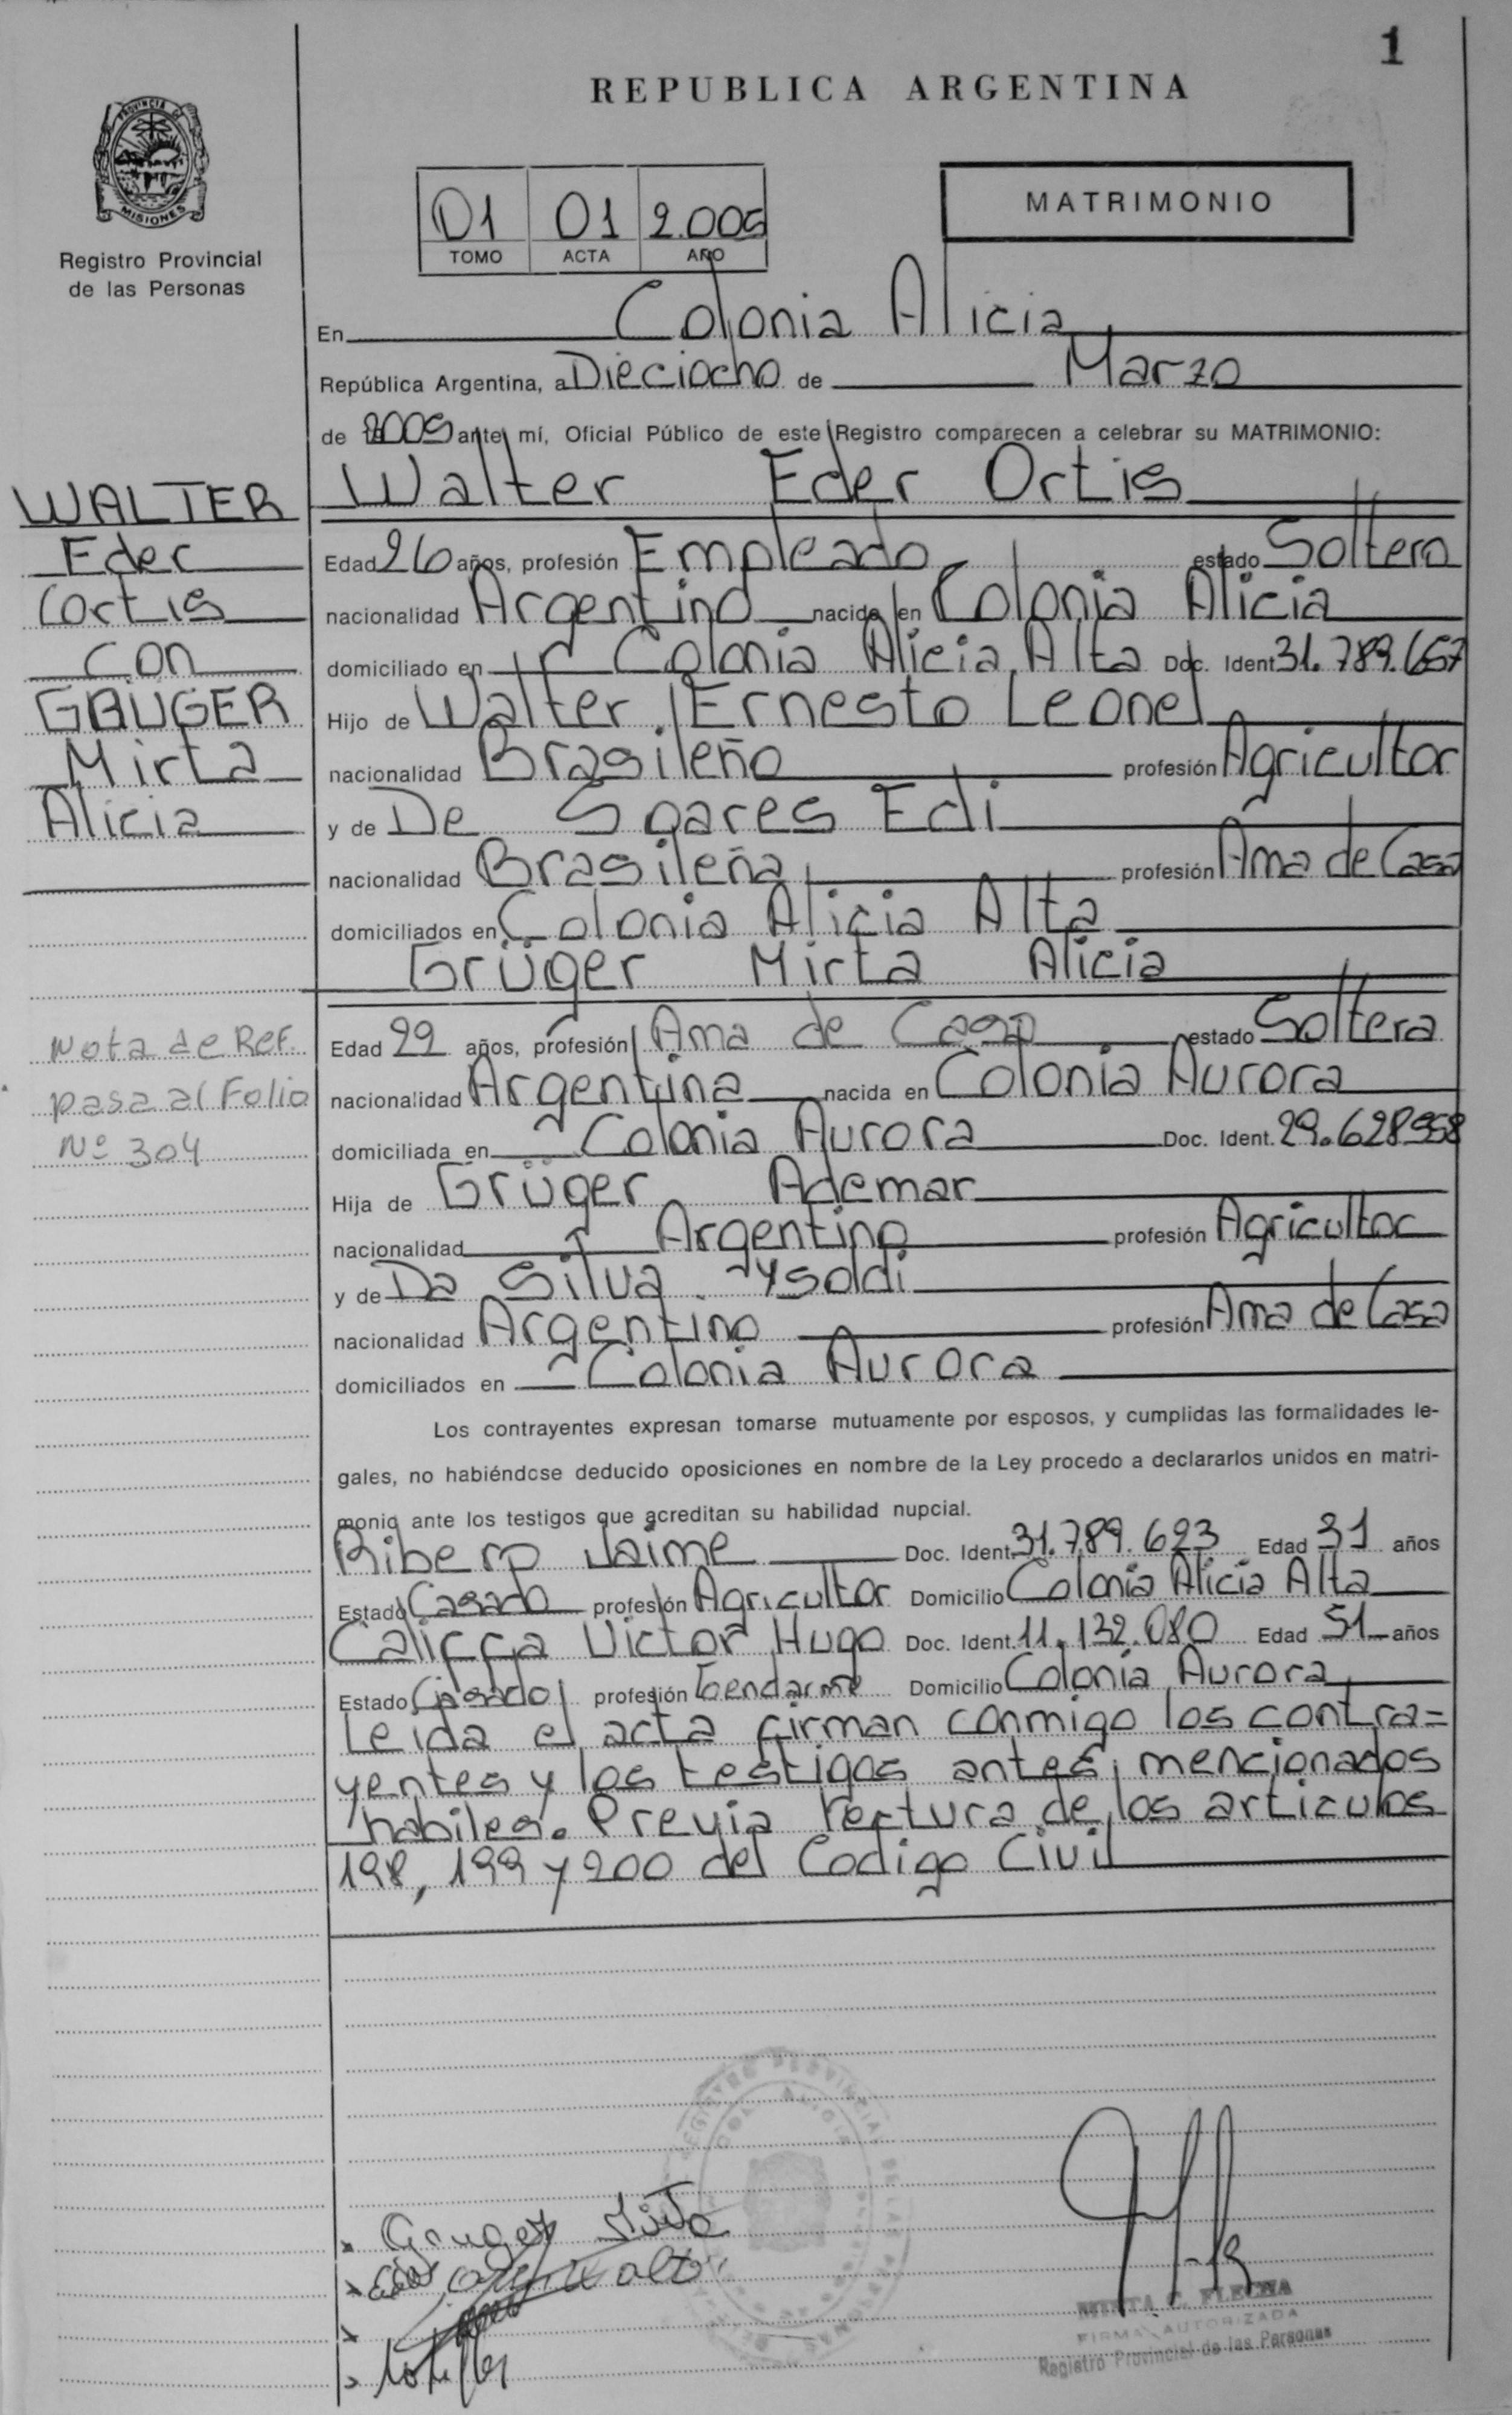 1
REPUBLICA ARGENTINA
PROVINCIA DE
MISIONES
Registro Provincial
de las Personas
MATRIMONIO
01 01 2.009
TOMO ACTA AÑO
En Colonia Alicia
República Argentina, a Dieciocho de Marzo
de 2009 ante mí, Oficial Público de este Registro comparecen a celebrar su MATRIMONIO:
Walter Eder Ortis
Edad 26 años, profesión Empleado estado Soltero
nacionalidad Argentino nacido en Colonia Alicia
domiciliado en Colonia Alicia Alta Doc. Ident. 31.789.657
Hijo de Walter Ernesto Leonel
nacionalidad Brasileño profesión Agricultor
y de De Soares Edi
nacionalidad Brasileña profesión Ama de Casa
domiciliados en Colonia Alicia Alta
Grüger Mirta Alicia
Edad 29 años, profesión Ama de Casa estado Soltera
nacionalidad Argentina nacida en Colonia Aurora
domiciliada en Colonia Aurora Doc. Ident. 29.628.958
Hija de Grüger Ademar
nacionalidad Argentino profesión Agricultor
y de Da Silva Ysoldi
nacionalidad Argentino profesión Ama de Casa
domiciliados en Colonia Aurora
Los contrayentes expresan tomarse mutuamente por esposos, y cumplidas las formalidades le-
gales, no habiéndose deducido oposiciones en nombre de la Ley procedo a declararlos unidos en matri-
monio ante los testigos que acreditan su habilidad nupcial.
Ribero Jaime Doc. Ident. 31.789.623 Edad 31 años
Estado Casado profesión Agricultor Domicilio Colonia Alicia Alta
Califfa Victor Hugo Doc. Ident. 11.132.080 Edad 51 años
Estado Casado profesión Gendarme Domicilio Colonia Aurora
Leida el acta firman conmigo los contra=
yentes y los testigos antes mencionados
habiles. Previa lectura de los articulos
198, 199 y 200 del Codigo Civil
WALTER
Eder
Ortis
con
GRUGER
Mirta
Alicia
Nota de Ref.
pasa al Folio
Nº 304
Gruger Mirta
MIRTA C. FLECHA
FIRMA AUTORIZADA
Registro Provincial de las Personas